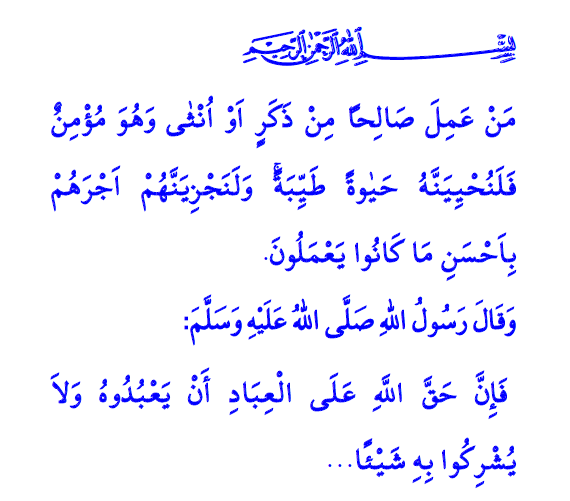 بِسْمِ اللهِ الرَّحْمٰنِ الرَّحِيمِ
مَنْ عَمِلَ صَالِحًا مِنْ ذَكَرٍ اَوْ اُنْثٰى وَهُوَ مُؤْمِنٌ
فَلَنُحْيِيَنَّهُ حَيٰوةً طَيِّبَةًۚ وَلَنَجْزِيَنَّهُمْ اَجْرَهُمْ
بِاَحْسَنِ مَا كَانُوا يَعْمَلُونَ.
وَقَالَ رَسُولُ اللهِ صَلَّى اللهُ عَلَيْهِ وَسَلَّمَ:
فَإِنَّ حَقَّ اللَّهِ عَلَى الْعِبَادِ أَنْ يَعْبُدُوهُ وَلاَ
يُشْرِكُوا بِهِ شَيْئًا…